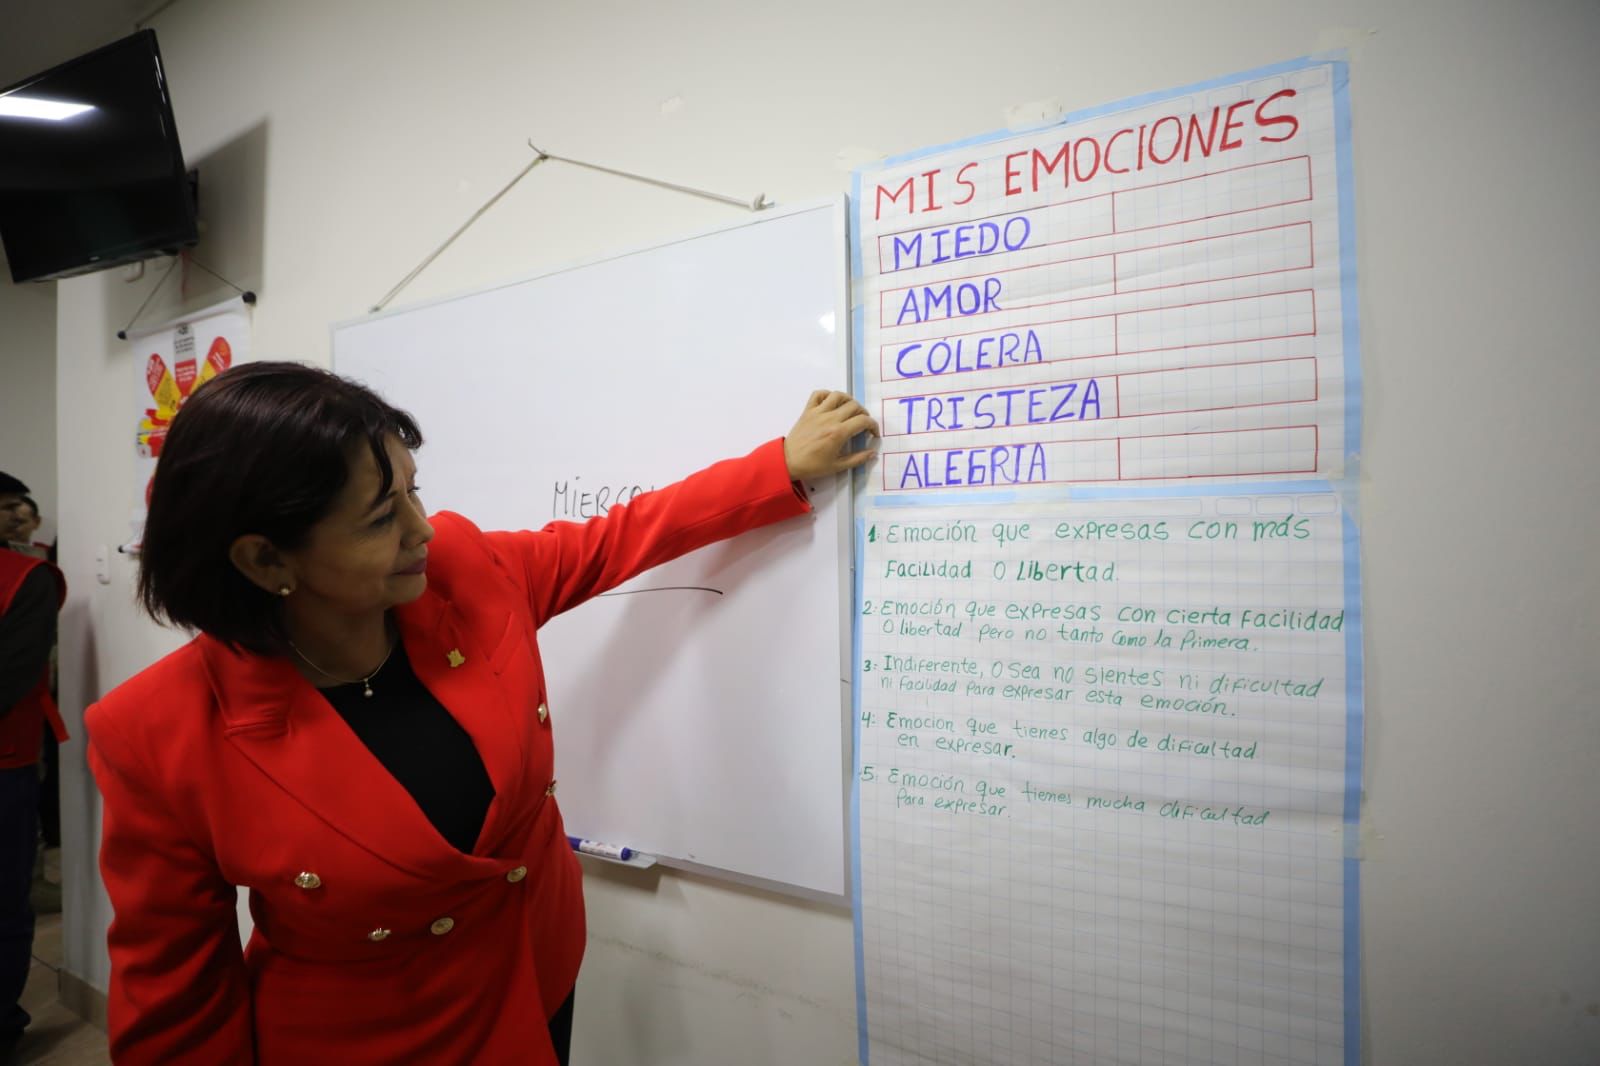 MIS EMOCIONES
MIEDO
AMOR
CÓLERA
TRISTEZA
ALEGRIA
MIERCOL
1. Emoción que expresas con más
Facilidad o libertad.
2. Emoción que expresas con cierta Facilidad
o libertad pero no tanto como la primera.
3. Indiferente, o sea no sientes ni dificultad
ni facilidad para expresar esta emoción.
4: Emocion que tienes algo de dificultad
en expresar.
5. Emoción que tienes mucha dificultad
para expresar.